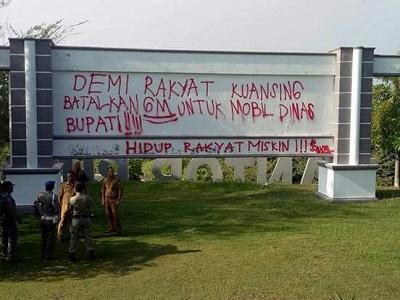 DEMI RAKYAT KUANSING
BATALKAN 6M UNTUK MOBIL DINAS
BUPATI!!!!
HIDUP RAKYAT MISKIN!!!